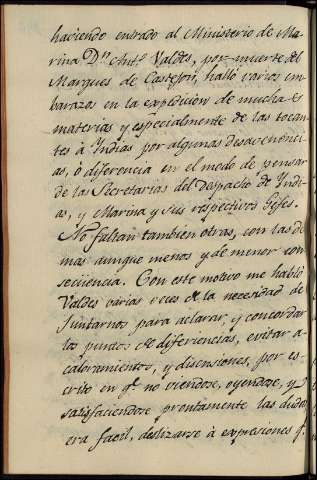 haciendo entrado al Ministerio de Ma-
rina Dⁿ Antº Valdés, por muerte del
Marques de Castejon, halló varios em-
barazos en la expedicion de muchas
materias y especialmente de las tocan-
tes à Yndias por algunas desavenenci-
as, ò diferencia en el modo de pensar
de las Secretarias del Despacho de Yndi-
as, y Marina y sus respectivos Gefes.
No faltan tambien otras, con las de-
mas aunque menos y de menor con-
seqüencia. Con este motivo me habló
Valdes varias veces de la necesidad de
juntarnos para aclarar, y concordar
los puntos de diferiencias, evitar a-
caloramientos, y disensiones, por es-
crito en qᵉ no viendose, oyendose, y
satisfaciendose prontamente las dudas
era facil, deslizarse à expresiones qᵉ